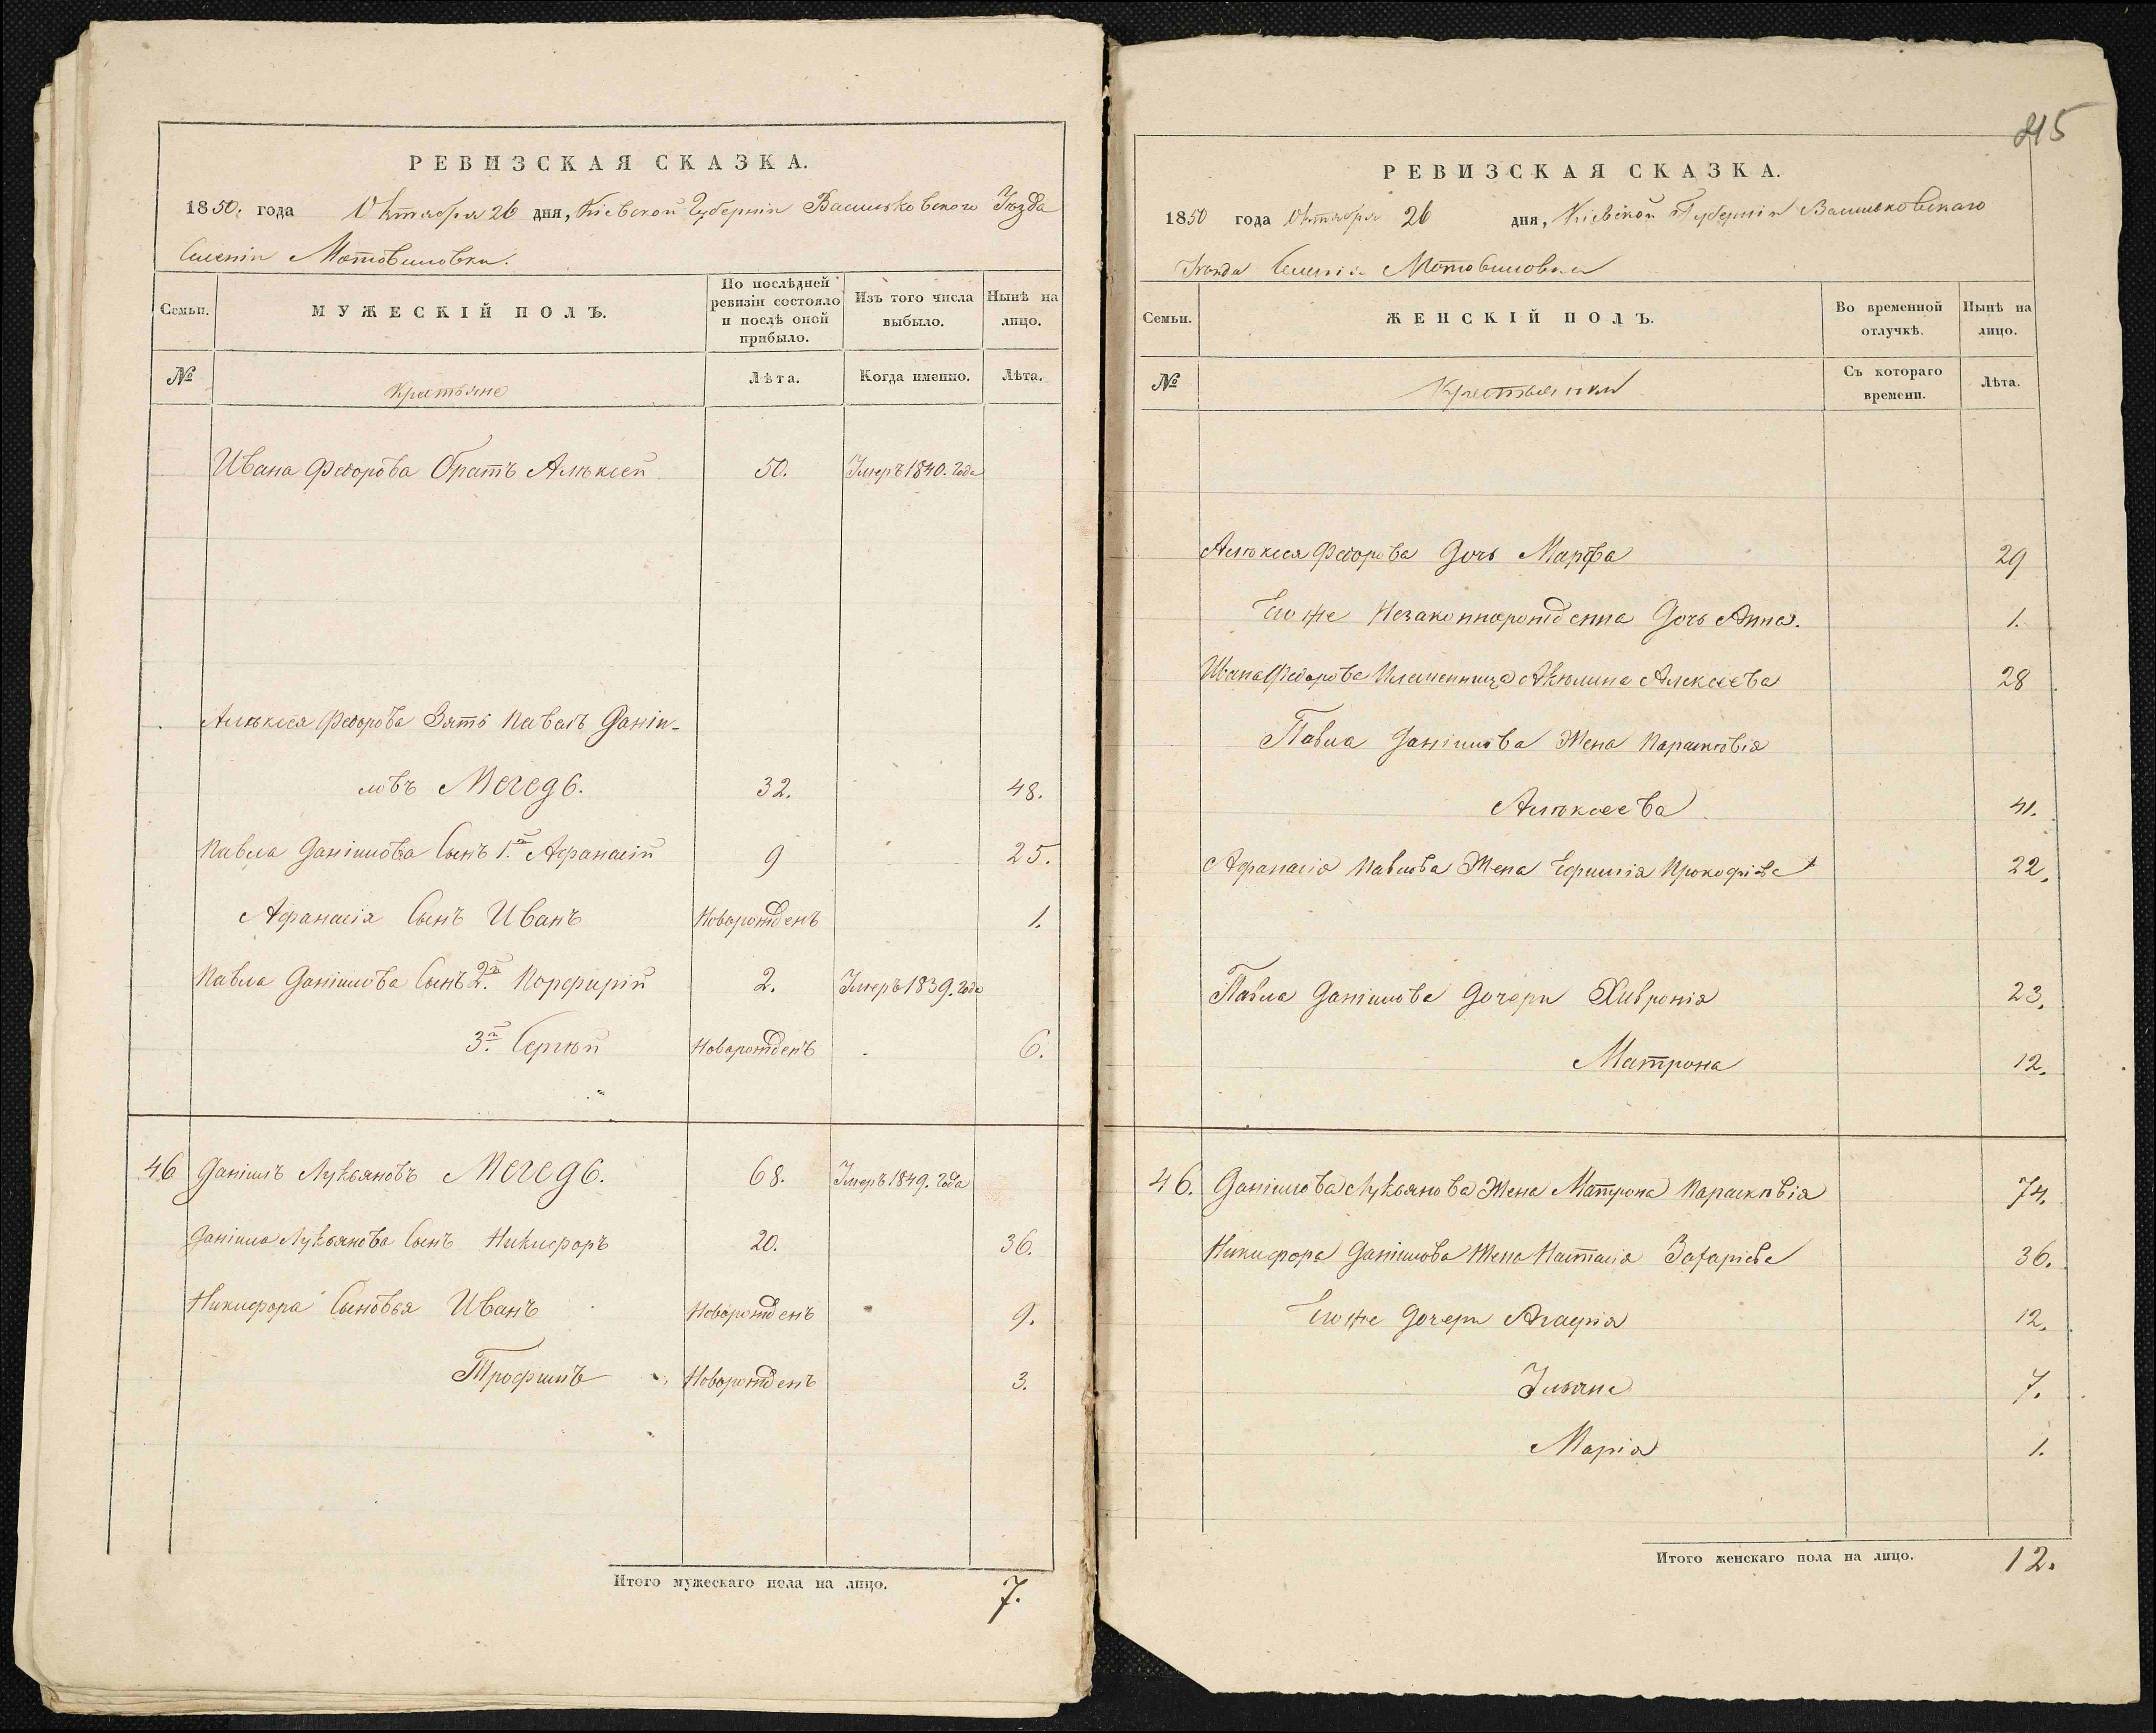 РЕВИЗСКАЯ СКАЗКА.
1850. года Октября 26 дня, Кіевской Губерніи Васильковского Уѣзда
Селенія Мотовиловки.
Семьи. МУЖЕСКІЙ ПОЛЪ. По послѣдней ревизіи состояло и послѣ оной прибыло. Изъ того числа выбыло. Нынѣ на лицо.
№ Крестьяне Лѣта. Когда именно. Лѣта.
Ивана Федорова братъ Алѣксей 50. Умеръ 1840. года
Алѣксея Федорова Зять Павелъ Даніи-
ловъ Мегедь. 32. 48.
Павла Даніилова Сынъ 1.й Афанасій 9 25.
Афанасія Сынъ Иванъ Новорожденъ 1.
Павла Даніилова Сынъ 2.й Порфирій 2. Умеръ 1839. года
3.й Сергѣй Новорожденъ 6.
46 Даніилъ Лукьяновъ Мегедь. 68. Умеръ 1849. года
Даніила Лукьянова Сынъ Никифоръ 20. 36.
Никифора Сыновья Иванъ Новорожденъ 9.
Трофимъ Новорожденъ 3.
Итого мужескаго пола на лицо. 7.
215
РЕВИЗСКАЯ СКАЗКА.
1850 года Октября 26 дня, Кіевской Губерніи Васильковскаго
Уѣзда Селенія Мотовиловки
Семьи. ЖЕНСКІЙ ПОЛЪ. Во временной отлучкѣ. Нынѣ на лицо.
№ Крестьянки Съ котораго времени. Лѣта.
Алѣксея Федорова Дочь Марфа 29
Еѣ же Незаконнорожденна Дочь Анна. 1.
Ивана Федорова Племенница Акюлина Алексеева 28
Павла Даніилова Жена Парасковія
Алѣксеева 41.
Афанасія Павлова Жена Ефимія Прокофіева 22.
Павла Даніилова Дочери Хивронія 23.
Матрона 12.
46. Даніилова Лукьянова Жена Матрона Парасковія 74.
Никифора Даніилова Жена Настасія Захаріева 36.
Его же Дочери Агафія 12.
Ульяна 7.
Марія 1.
Итого женскаго пола на лицо. 12.